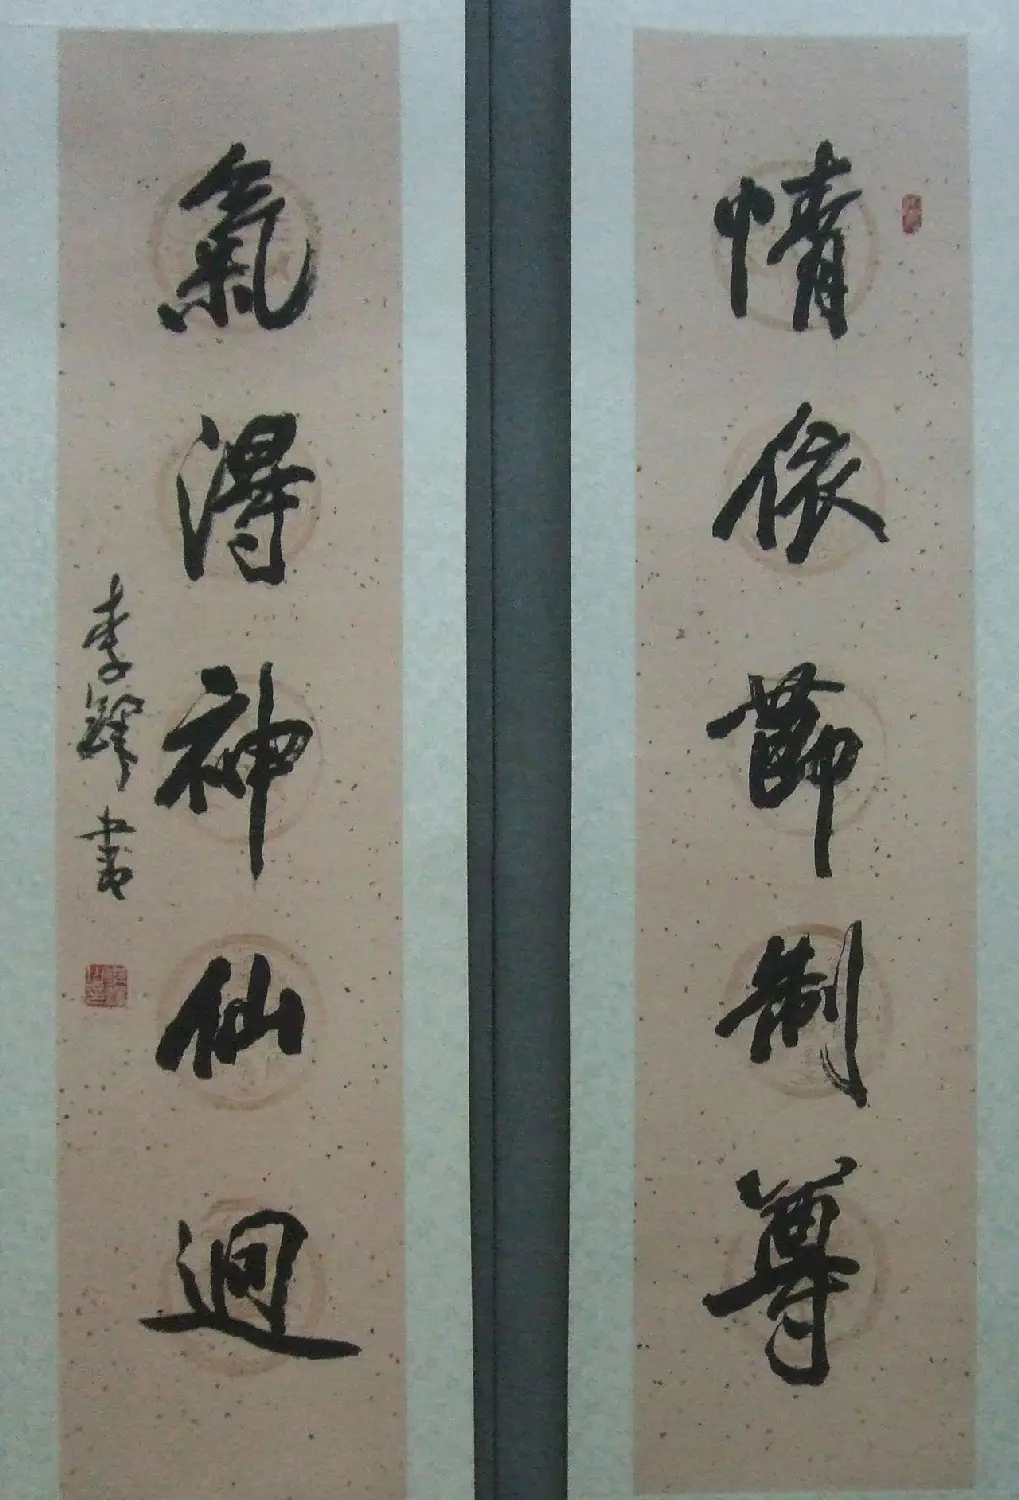 情依節制尊
氣得神仙迥
李鐸書